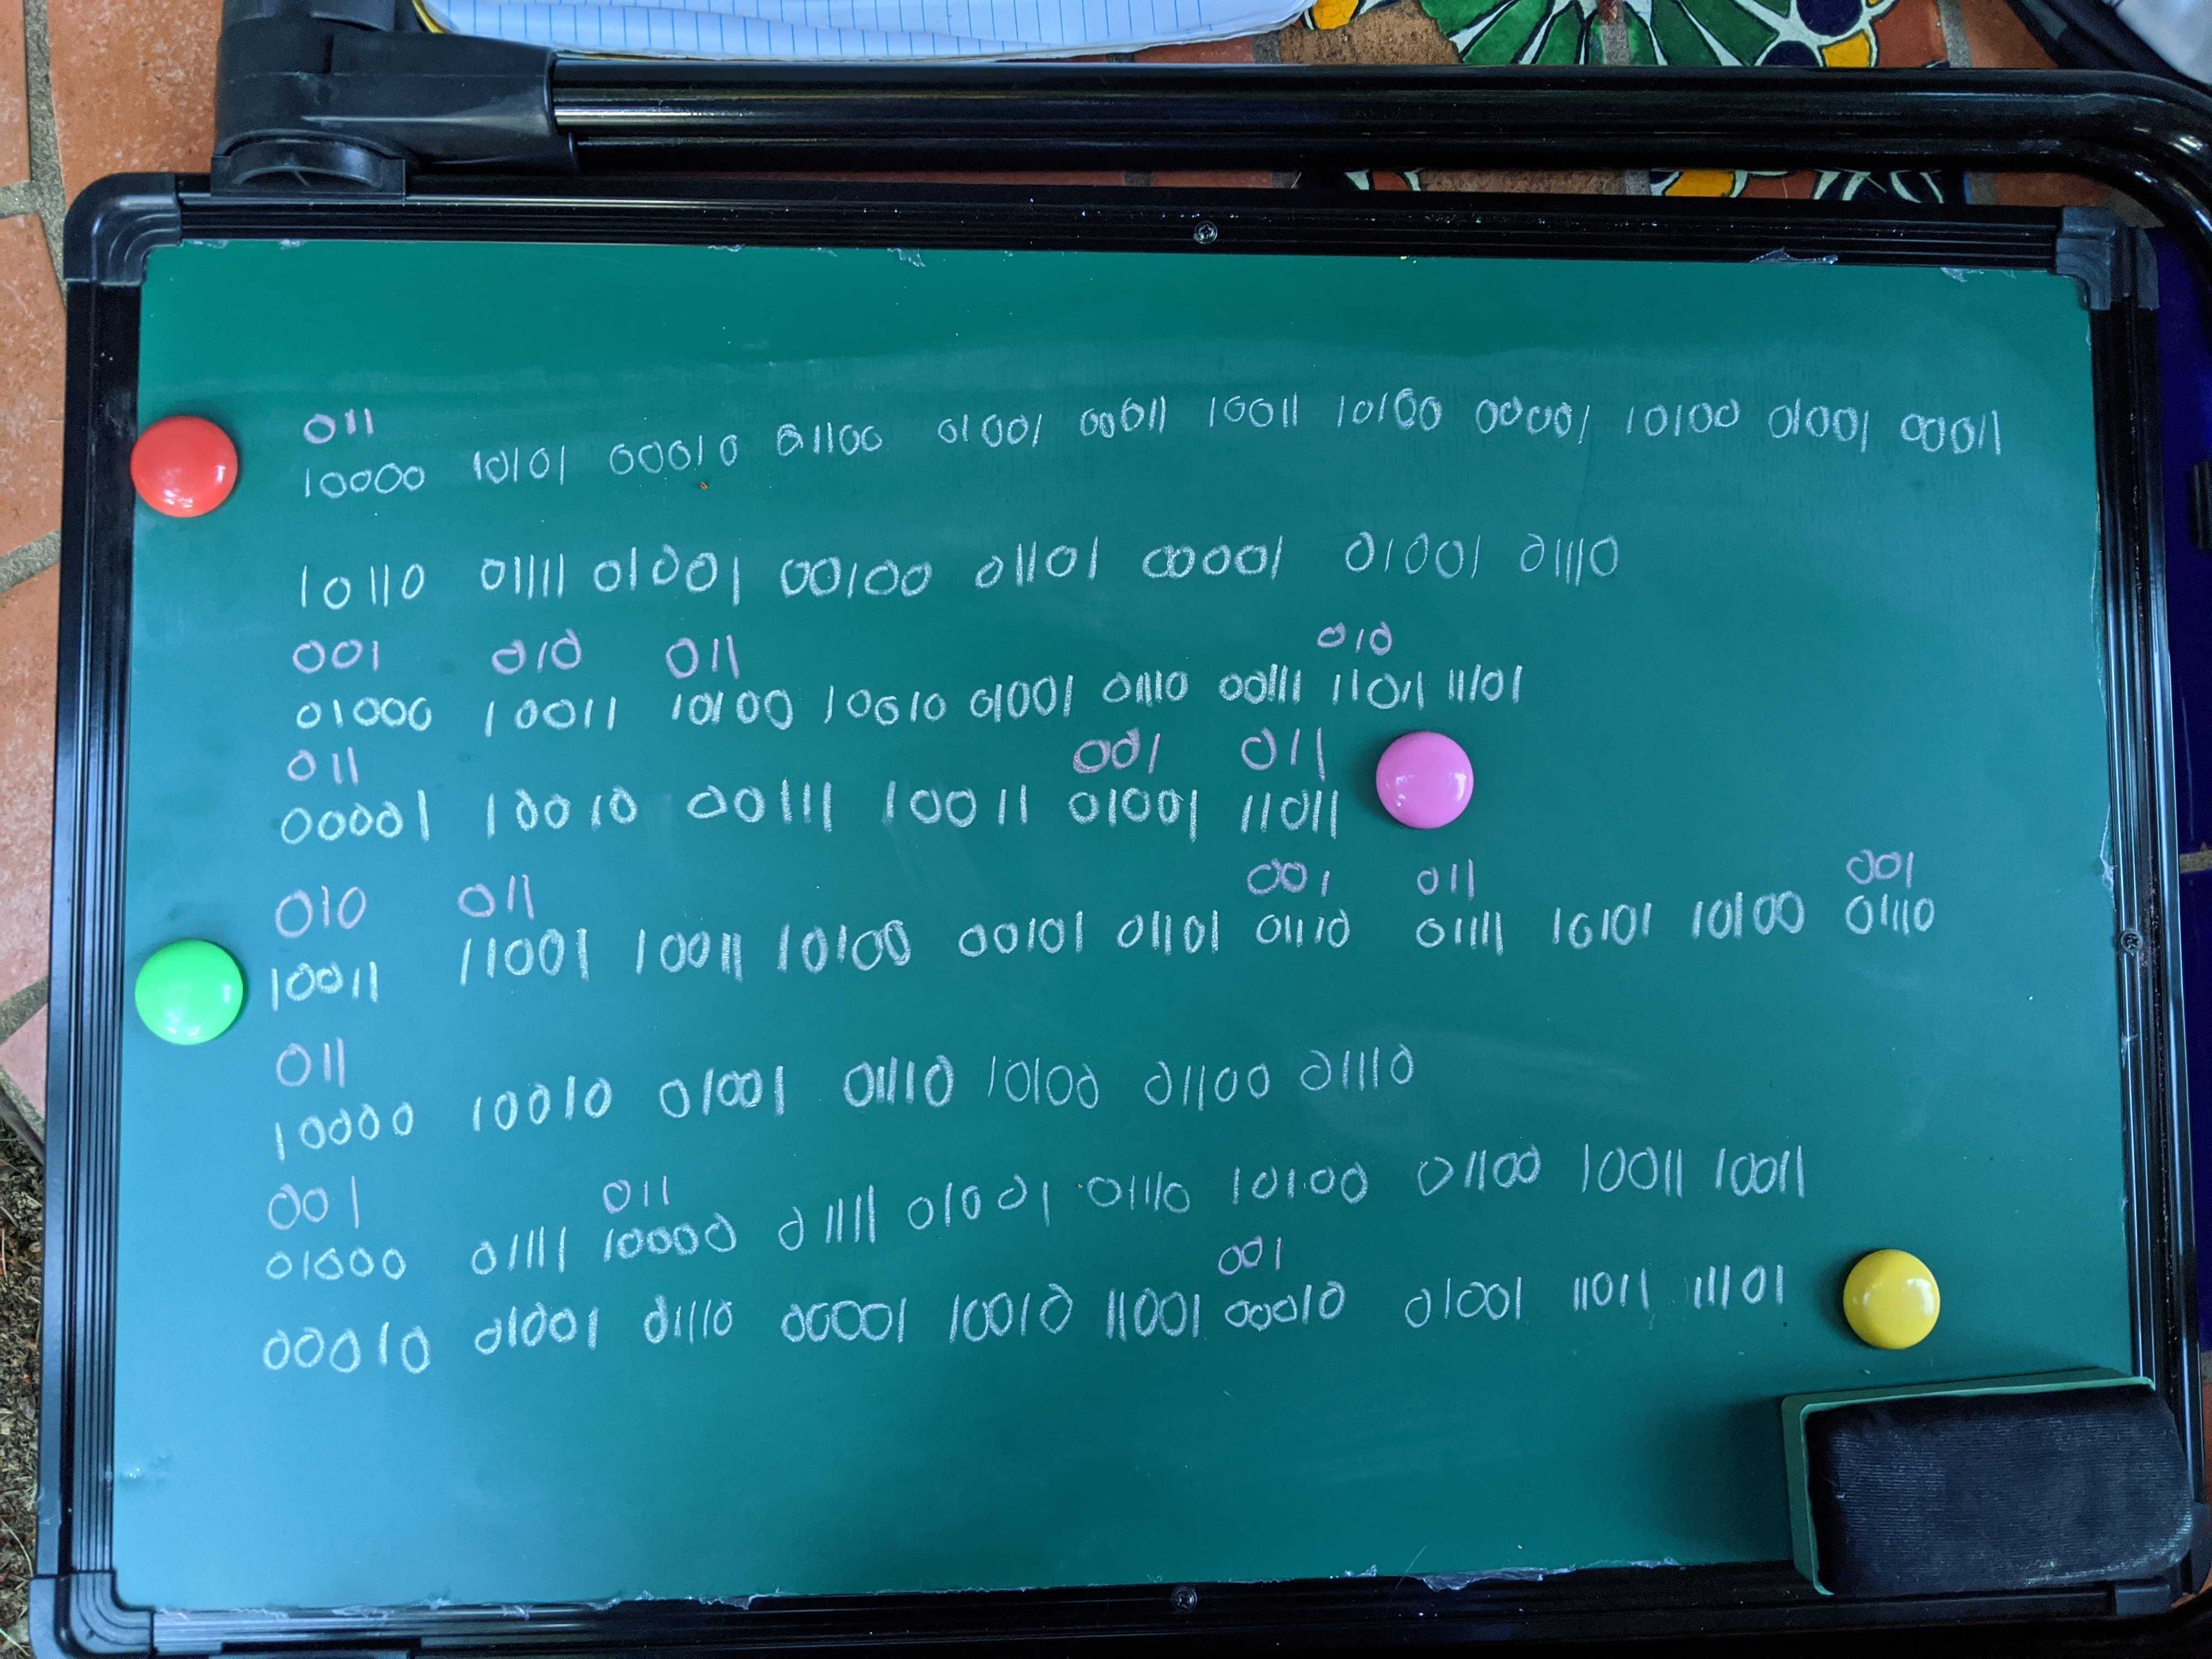 011
10000 10101 00010 01100 01001 00011 10011 10100 00001 10100 01001 00011
10110 01111 01001 00100 01101 00001 01001 01110
001 010 011 010
01000 10011 10100 10010 01001 01110 00111 11011 11101
011 001 011
00001 10010 00111 10011 01001 11011
010 011 001 011 001
10011 11001 10011 10100 00101 01101 01110 01111 10101 10100 01110
011
10000 10010 01001 01110 10100 01100 01110
001 011
01000 01111 10000 01111 01001 01110 10100 01100 10011 10011
001
00010 01001 01110 00001 10010 11001 00010 01001 11011 11101